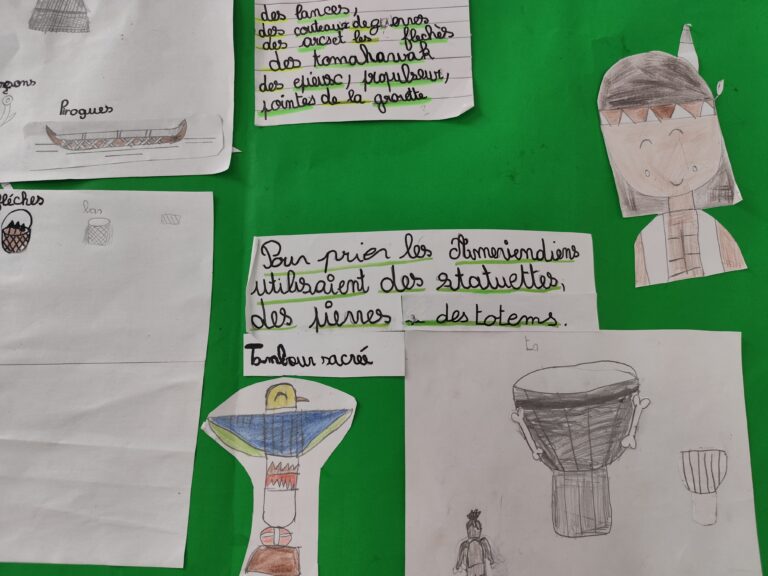 des lances,
des couteaux de guerres
des arcs et les flechès
des tomahawak
des epieux, propulseur,
pointes de la grouette
Pirogues
fléches
Pour prier les Ameriendiens
utilisaient des statuettes,
des pierres ou des totems.
Tambour sacrée